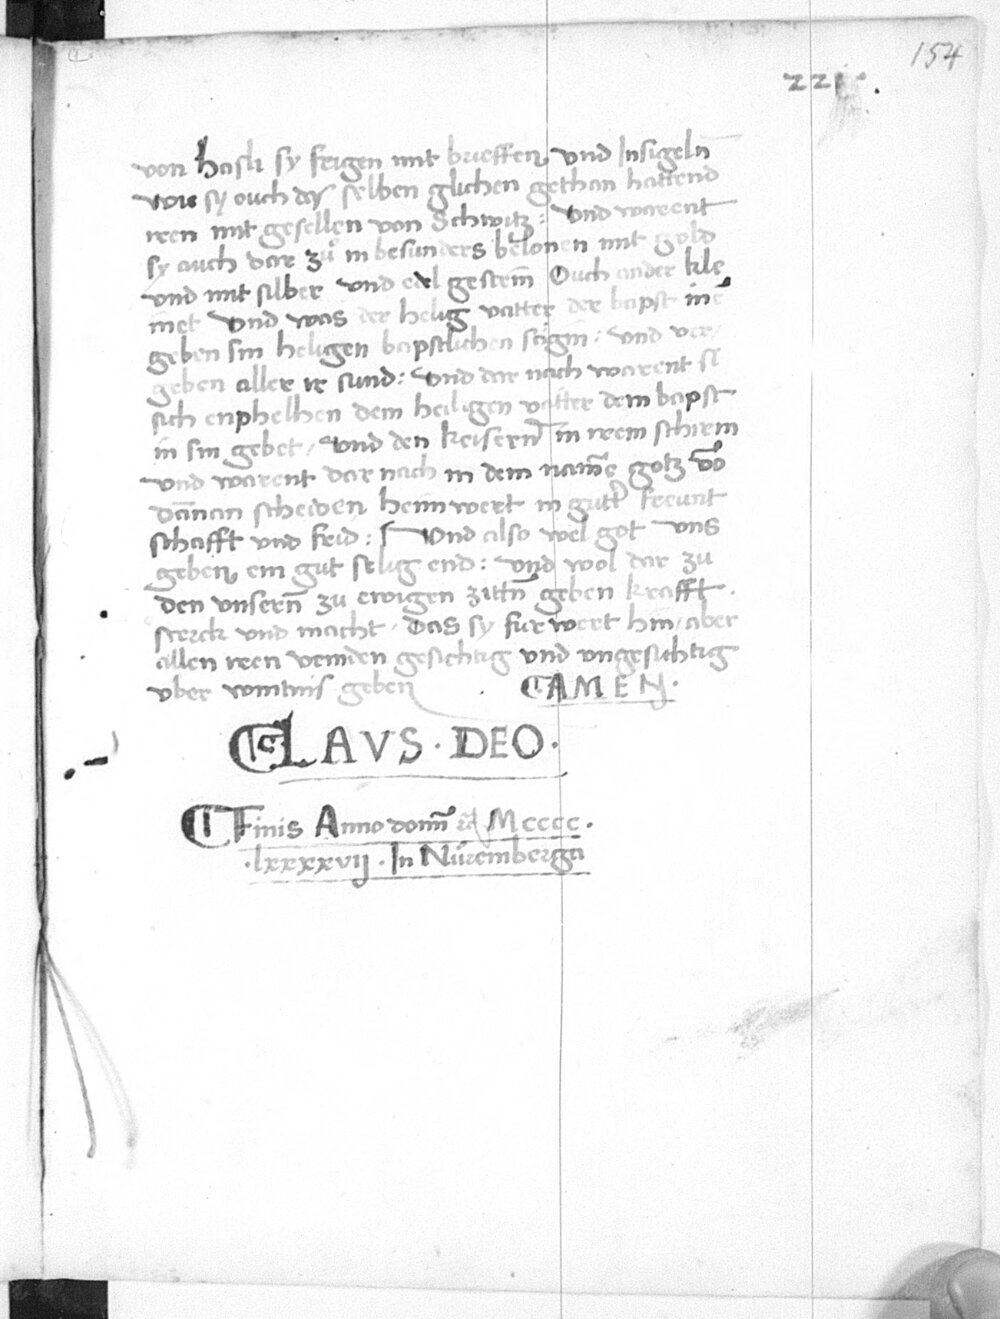 154
von Hasli sy feigen mit brieffen vnd Insigeln
wie sy ouch des selben glichen gethan hattend
reen mit gesellen von Schwitz : Vnd warent
sy auch dar zů in besunders belonen mit gold
vnd mit silber vnd edel gestein̄ Ouch ander kle
inet Vnd was der helig vatter der bapst ine
geben sin heligen bapstlichen segin : vnd ver/
geben aller ir sund : Vnd dar nach warent si
sich enphelhen dem heiligen vatter dem bapst
in sin gebet / Vnd den keisern in ireem schirm
vnd warent dar nach in dem name gotz vō
dānan scheiden heim wert in guter freunt
schafft vnd frid : Vnd also wel got vns
geben ein gut selig end : vnd wol dar zu
den vnsern̄ zu ewigen zittn̄ geben krafft .
sterck vnd macht . Das sy fur wert hin / aber
allen iren veinden gesichtig vnd vngesichtig
vber winttnis geben AMEN .
LAVS . DEO .
Finis Anno domī Mcccc .
. lxxxxvij . In Nůremberga